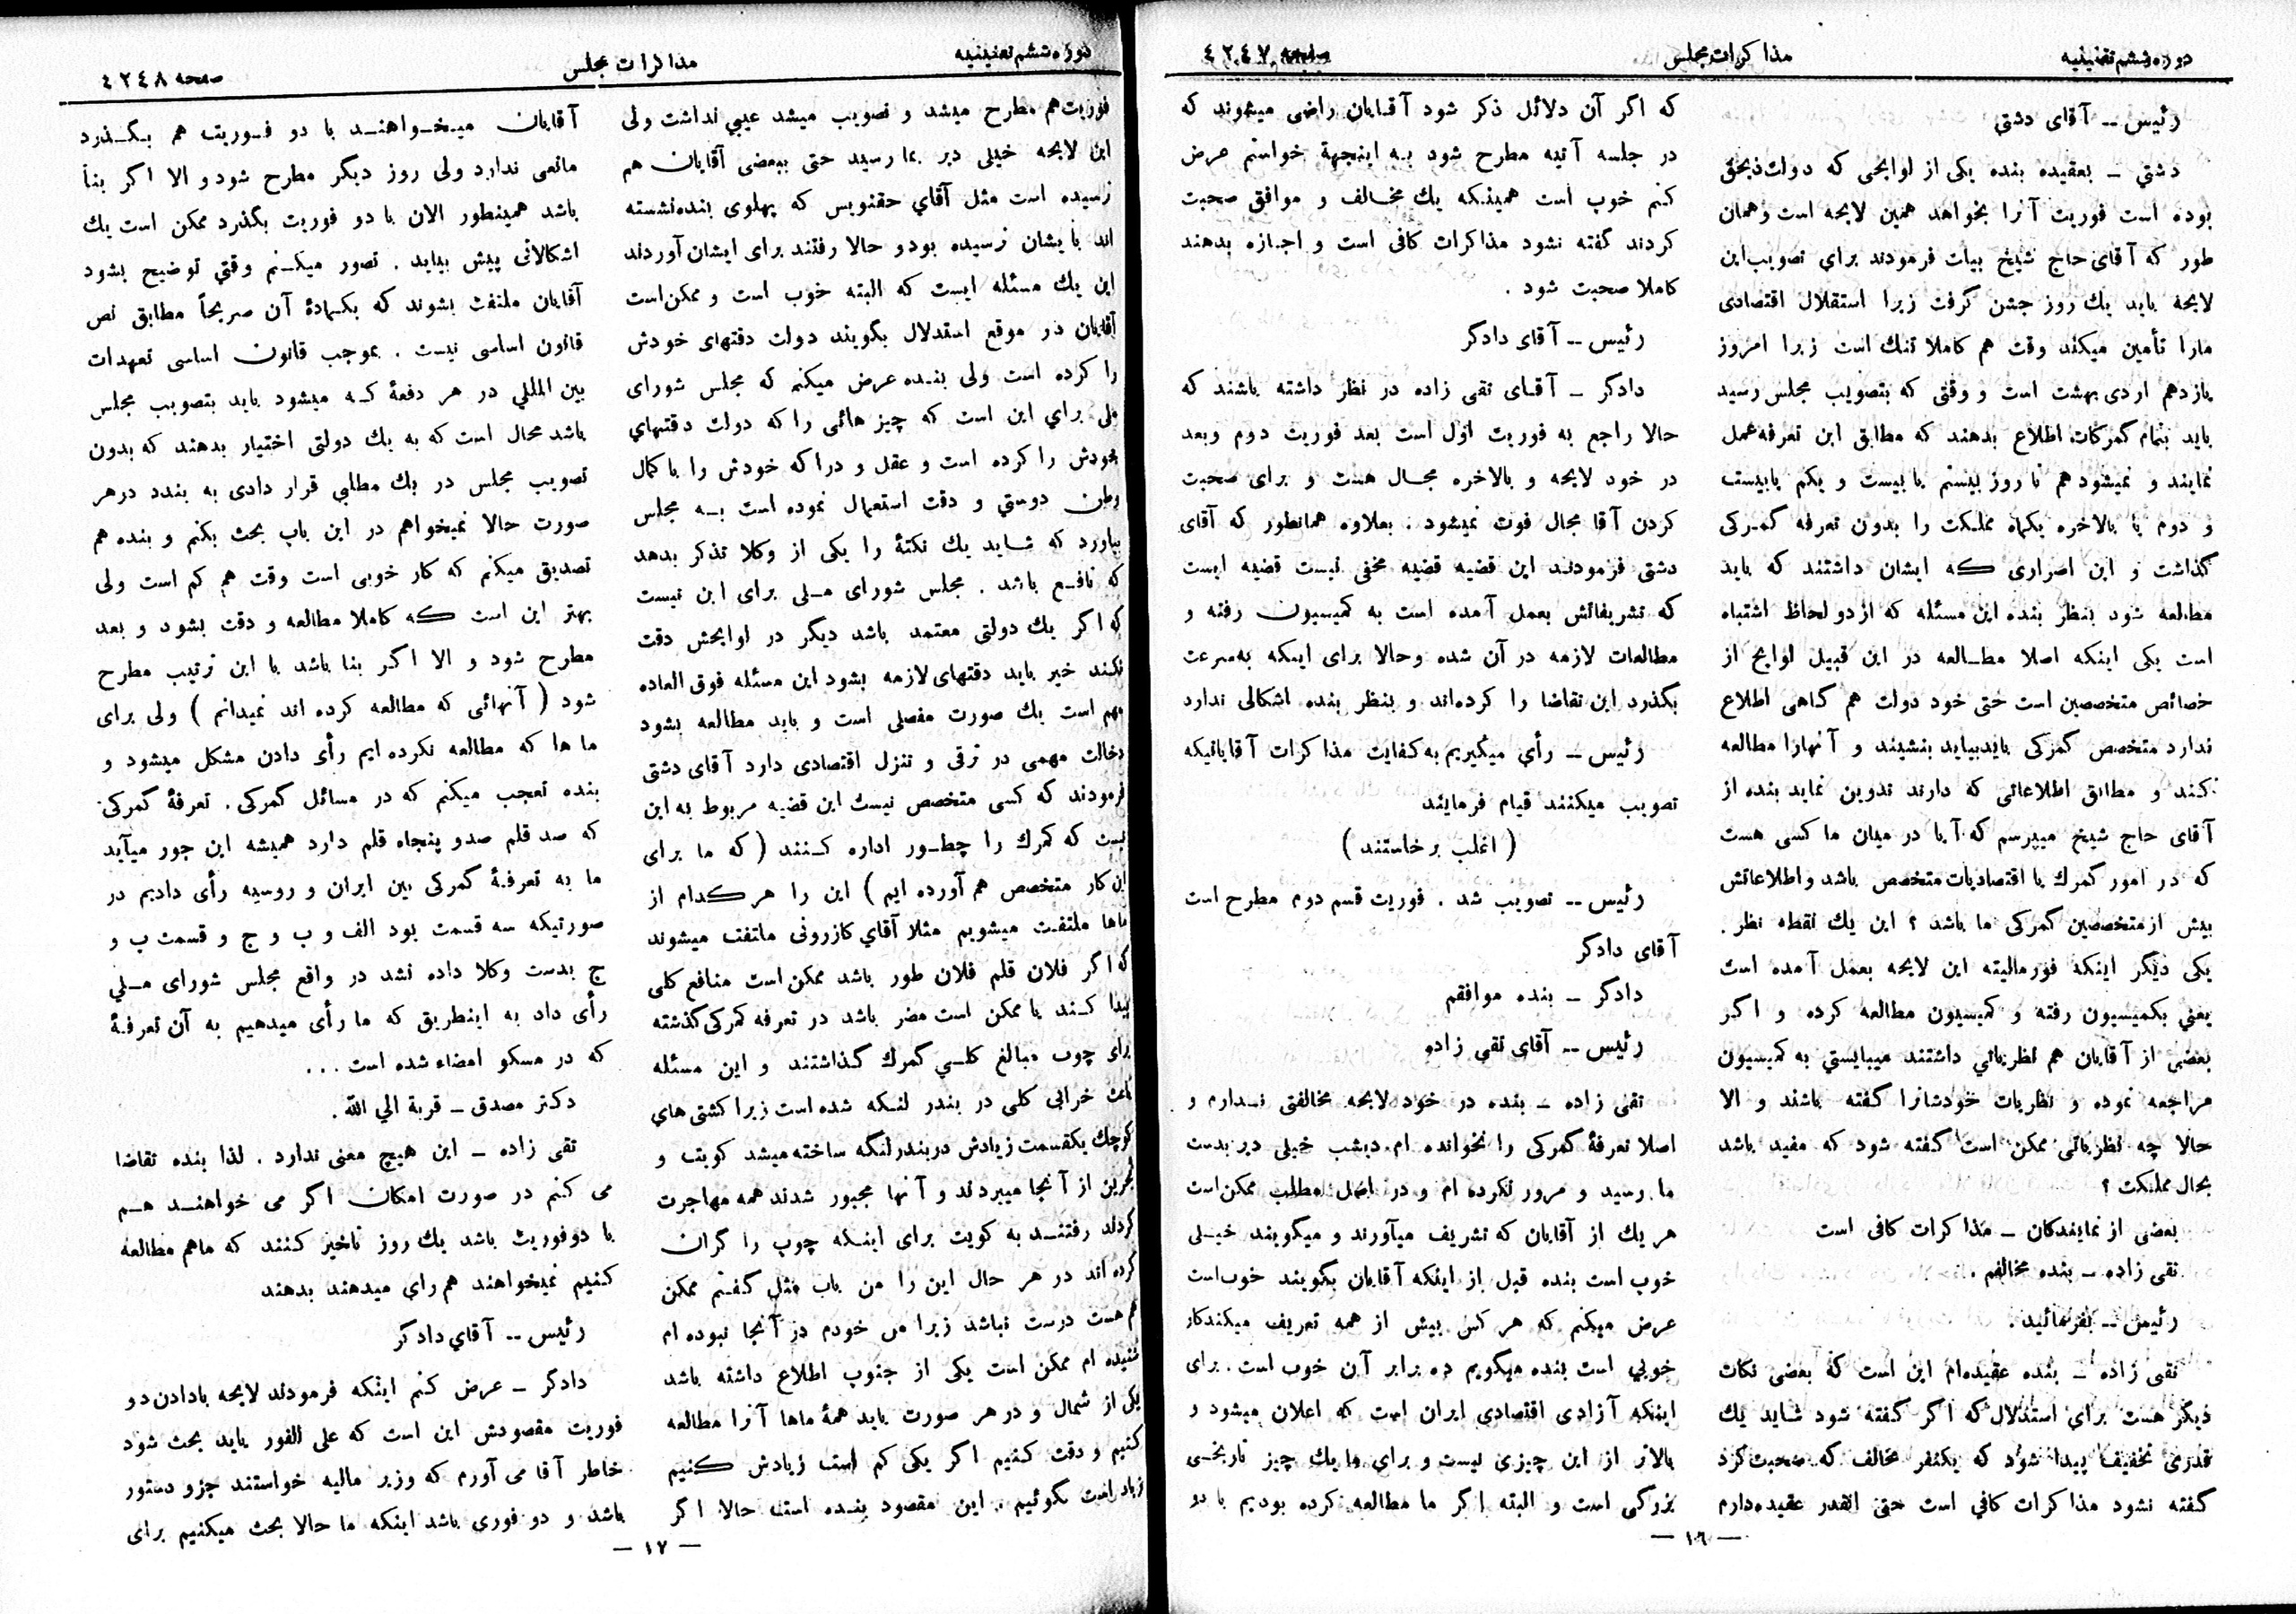 دوره ششم تقنینیه
مذاکرات مجلس
صفحه ٤٢٤٧
رئیس -- آقای دشتی
دشتی - بعقیده بنده یکی از لوایحی که دولت ذیحق
بوده است فوریت آنرا بخواهد همین لایحه است وهمان
طور که آقای حاج شیخ بیات فرمودند برای تصویب این
لایحه باید یک روز جشن گرفت زیرا استقلال اقتصادی
مارا تأمین میکند وقت هم کاملا تنگ است زیرا امروز
یازدهم اردی بهشت است و وقتی که بتصویب مجلس رسید
باید بتمام گمرکات اطلاع بدهند که مطابق این تعرفه عمل
نمایند و نمیشود هم تا روز بیستم یا بیست و یکم یا بیست
و دوم یا بالاخره یکماه مملکت را بدون تعرفه گمرکی
گذاشت و این اصراری که ایشان داشتند که باید
مطالعه شود بنظر بنده این مسئله که از دو لحاظ اشتباه
است یکی اینکه اصلا مطالعه در این قبیل لوایح از
خصائص متخصصین است حتی خود دولت هم گاهی اطلاع
ندارد متخصص گمرکی باید بیاید بنشیند و آنهارا مطالعه
کند و مطابق اطلاعاتی که دارند تدوین نماید بنده از
آقای حاج شیخ میپرسم که آیا در میان ما کسی هست
که در امور گمرک یا اقتصادیات متخصص باشد و اطلاعاتش
بیش از متخصصین گمرکی ما باشد ؟ این یک نقطه نظر .
یکی دیگر اینکه فورمالیته این لایحه بعمل آمده است
یعنی بکمیسیون رفته و کمیسیون مطالعه کرده و اگر
بعضی از آقایان هم نظریاتی داشتند میبایستی به کمیسیون
مراجعه نموده و نظریات خودشانرا گفته باشند و الا
حالا چه نظریاتی ممکن است گفته شود که مفید باشد
بحال مملکت ؟
بعضی از نمایندگان - مذاکرات کافی است
تقی زاده - بنده مخالفم .
رئیس -- بفرمائید .
تقی زاده - بنده عقیده‌ام این است که بعضی نکات
دیگر هست برای استدلال که اگر گفته شود شاید یک
قدری تخفیف پیدا شود که یکنفر مخالف که صحبت کرد
گفته نشود مذاکرات کافی است حتی اینقدر عقیده دارم
که اگر آن دلائل ذکر شود آقایان راضی میشوند که
در جلسه آتیه مطرح شود به اینجهة خواستم عرض
کنم خوب است همینکه یک مخالف و موافق صحبت
کردند گفته نشود مذاکرات کافی است و اجازه بدهند
کاملا صحبت شود .
رئیس -- آقای دادگر
دادگر - آقای تقی زاده در نظر داشته باشند که
حالا راجع به فوریت اول است بعد فوریت دوم وبعد
در خود لایحه و بالاخره مجال هست و برای صحبت
کردن آقا مجال فوت نمیشود . بعلاوه همانطور که آقای
دشتی فرمودند این قضیه قضیه مخفی نیست قضیه ایست
که تشریفاتش بعمل آمده است به کمیسیون رفته و
مطالعات لازمه در آن شده وحالا برای اینکه به سرعت
بگذرد این تقاضا را کرده‌اند و بنظر بنده اشکالی ندارد
رئیس -- رأی میگیریم به کفایت مذاکرات آقایانیکه
تصویب میکنند قیام فرمایند
( اغلب برخاستند )
رئیس -- تصویب شد . فوریت قسم دوم مطرح است
آقای دادگر
دادگر - بنده موافقم
رئیس -- آقای تقی زاده
تقی زاده - بنده در خود لایحه مخالفتی ندارم و
اصلا تعرفهٔ گمرکی را نخوانده ام دیشب خیلی دیر بدست
ما رسید و مرور نکرده ام و در اصل مطلب ممکن است
هر یک از آقایان که تشریف میآورند و میگویند خیلی
خوب است بنده قبل از اینکه آقایان بگویند خوب است
عرض میکنم که هر کس بیش از همه تعریف میکند کار
خوبی است بنده میگویم ده برابر آن خوب است . برای
اینکه آزادی اقتصادی ایران است که اعلان میشود و
بالاتر از این چیزی نیست و برای ما یک چیز تاریخی
بزرگی است و البته اگر ما مطالعه کرده بودیم با دو
— ١٦ —
دوره ششم تقنینیه
مذاکرات مجلس
صفحه ٤٢٤٨
فوریت هم مطرح میشد و تصویب میشد عیبی نداشت ولی
این لایحه خیلی دیر بما رسید حتی ببعضی آقایان هم
نرسیده است مثل آقای حقنویس که پهلوی بنده نشسته
اند بایشان نرسیده بود و حالا رفتند برای ایشان آوردند
این یک مسئله ایست که البته خوب است و ممکن است
آقایان در موقع استدلال بگویند دولت دقتهای خودش
را کرده است ولی بنده عرض میکنم که مجلس شورای
ملی برای این است که چیز هائی را که دولت دقتهای
خودش را کرده است و عقل و دراکه خودش را با کمال
وطن دوستی و دقت استعمال نموده است به مجلس
بیاورد که شاید یک نکتهٔ را یکی از وکلا تذکر بدهد
که نافع باشد . مجلس شورای ملی برای این نیست
که اگر یک دولتی معتمد باشد دیگر در لوایحش دقت
نکند خیر باید دقتهای لازمه بشود این مسئله فوق العاده
مهم است یک صورت مفصلی است و باید مطالعه بشود
دخالت مهمی در ترقی و تنزل اقتصادی دارد آقای دشتی
فرمودند که کسی متخصص نیست این قضیه مربوط به این
نیست که گمرک را چطور اداره کنند ( که ما برای
این کار متخصص هم آورده ایم ) این را هر کدام از
ماها ملتفت میشویم مثلا آقای کازرونی ملتفت میشوند
که اگر فلان قلم فلان طور باشد ممکن است منافع کلی
پیدا کند یا ممکن است مضر باشد در تعرفه گمرکی گذشته
برای چوب مبالغ کلی گمرک گذاشتند و این مسئله
باعث خرابی کلی در بندر لنگه شده است زیرا کشتی های
کوچک یکقسمت زیادش در بندر لنگه ساخته میشد کویت و
بحرین از آنجا میبردند و آنها مجبور شدند همه مهاجرت
کردند رفتند به کویت برای اینکه چوب را گران
کرده اند در هر حال این را من باب مثل گفتم ممکن
هم هست درست نباشد زیرا من خودم در آنجا نبوده ام
شنیده ام ممکن است یکی از جنوب اطلاع داشته باشد
یکی از شمال و در هر صورت باید همهٔ ماها آنرا مطالعه
کنیم و دقت کنیم اگر یکی کم است زیادش کنیم
زیاد است بگوئیم . این مقصود بنده است حالا اگر
آقایان میخواهند با دو فوریت هم بگذرد
مانعی ندارد ولی روز دیگر مطرح شود و الا اگر بنا
باشد همینطور الان با دو فوریت بگذرد ممکن است یک
اشکالاتی پیش بیاید . تصور میکنم وقتی توضیح بشود
آقایان ملتفت بشوند که یکمادهٔ آن صریحاً مطابق نص
قانون اساسی نیست . بموجب قانون اساسی تعهدات
بین المللی در هر دفعهٔ که میشود باید بتصویب مجلس
باشد محال است که به یک دولتی اختیار بدهند که بدون
تصویب مجلس در یک مطلبی قرار دادی به بندد در هر
صورت حالا نمیخواهم در این باب بحث بکنم و بنده هم
تصدیق میکنم که کار خوبی است وقت هم کم است ولی
بهتر این است که کاملا مطالعه و دقت بشود و بعد
مطرح شود و الا اگر بنا باشد با این ترتیب مطرح
شود ( آنهائی که مطالعه کرده اند نمیدانم ) ولی برای
ما ها که مطالعه نکرده ایم رأی دادن مشکل میشود و
بنده تعجب میکنم که در مسائل گمرکی . تعرفهٔ گمرکی
که صد قلم صدو پنجاه قلم دارد همیشه این جور میآید
ما به تعرفهٔ گمرکی بین ایران و روسیه رأی دادیم در
صورتیکه سه قسمت بود الف و ب و ج و قسمت ب و
ج بدست وکلا داده نشد در واقع مجلس شورای ملی
رأی داد به اینطریق که ما رأی میدهیم به آن تعرفهٔ
که در مسکو امضاء شده است ...
دکتر مصدق - قربة الی الله .
تقی زاده - این هیچ معنی ندارد . لذا بنده تقاضا
می کنم در صورت امکان اگر می خواهند هم
با دو فوریت باشد یک روز تاخیر کنند که ماهم مطالعه
کنیم نمیخواهند هم رای میدهند بدهند
رئیس -- آقای دادگر
دادگر - عرض کنم اینکه فرمودند لایحه بادادن دو
فوریت مقصودش این است که علی الفور باید بحث شود
خاطر آقا می آورم که وزیر مالیه خواستند جزو دستور
باشد و دو فوری باشد اینکه ما حالا بحث میکنیم برای
— ١٧ —